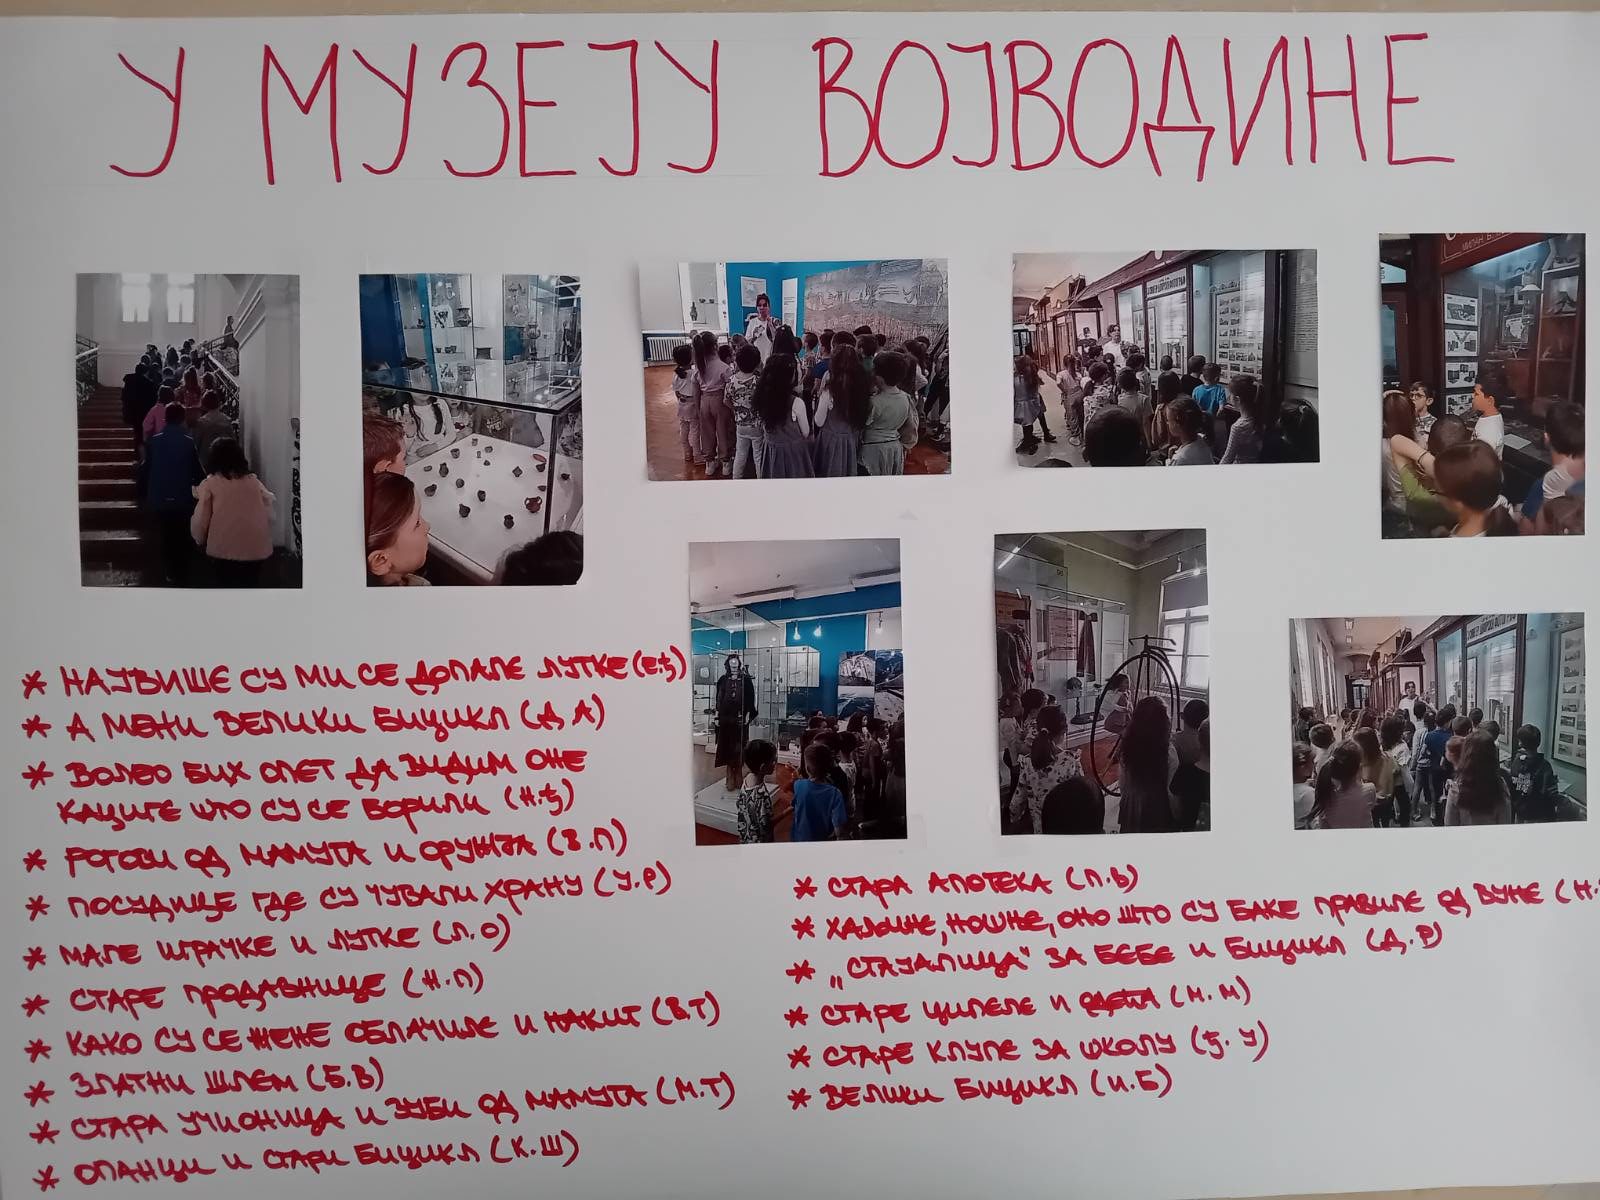 У МУЗЕЈУ ВОЈВОДИНЕ
* НАЈВИШЕ СУ МИ СЕ ДОПАЛЕ ЛУТКЕ (Е.Ђ)
* А МЕНИ ВЕЛИКИ БИЦИКЛ (Д.А)
* ВОЛЕО БИХ ОПЕТ ДА ВИДИМ ОНЕ
КАЦИГЕ ШТО СУ СЕ БОРИЛИ (Н.Ђ)
* РОГОВИ ОД МАМУТА И ОРУЖЈА (В.П)
* ПОСУДИЦЕ ГДЕ СУ ЧУВАЛИ ХРАНУ (У.Р)
* МАЛЕ ИГРАЧКЕ И ЛУТКЕ (Л.О)
* СТАРЕ ПРОДАВНИЦЕ (Н.П)
* КАКО СУ СЕ ЖЕНЕ ОБЛАЧИЛЕ И НАКИТ (В.Т)
* ЗЛАТНИ ШЛЕМ (Б.В)
* СТАРА УЧИОНИЦА И ЗУБИ ОД МАМУТА (М.Т)
* ОПАНЦИ И СТАРИ БИЦИКЛ (К.Ш)
* СТАРА АПОТЕКА (П.В)
* ХАЉИНЕ, НОШЊЕ, ОНО ШТО СУ БАКЕ ПРАВИЛЕ ОД ВУНЕ
* „СТАЈАЛИЦА" ЗА БЕБЕ И БИЦИКЛ (Д.Р)
* СТАРЕ ЦИПЕЛЕ И ОДЕЛА (М.М)
* СТАРЕ КЛУПЕ ЗА ШКОЛУ (Ђ.У)
* ВЕЛИКИ БИЦИКЛ (И.Б)